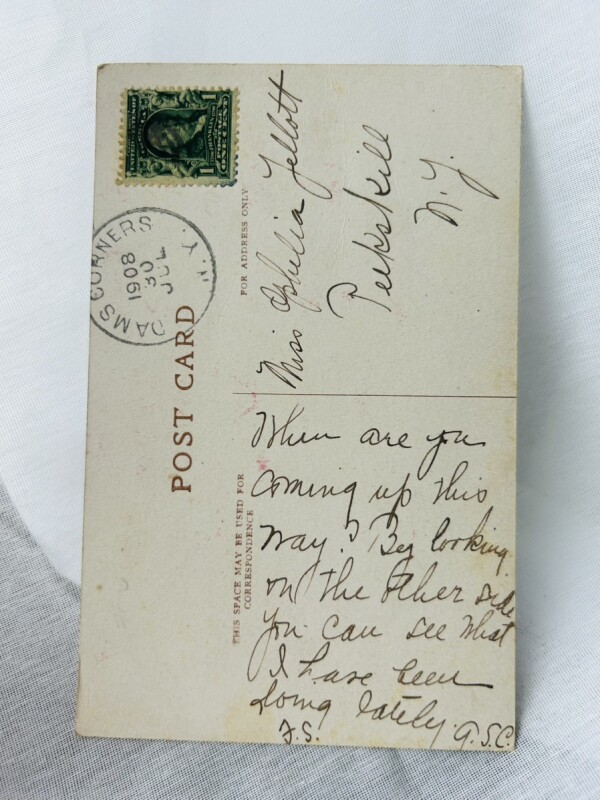 POST CARD
THIS SPACE MAY BE USED FOR
CORRESPONDENCE
FOR ADDRESS ONLY
1
1
1908
30
JUL
DAMS CORNERS N.Y.
Miss Ophelia
Peekskill
N.Y.
When are you
coming up this
way? By looking
on the other side
you can see what
I have been
doing lately.
F.S. G.S.C.